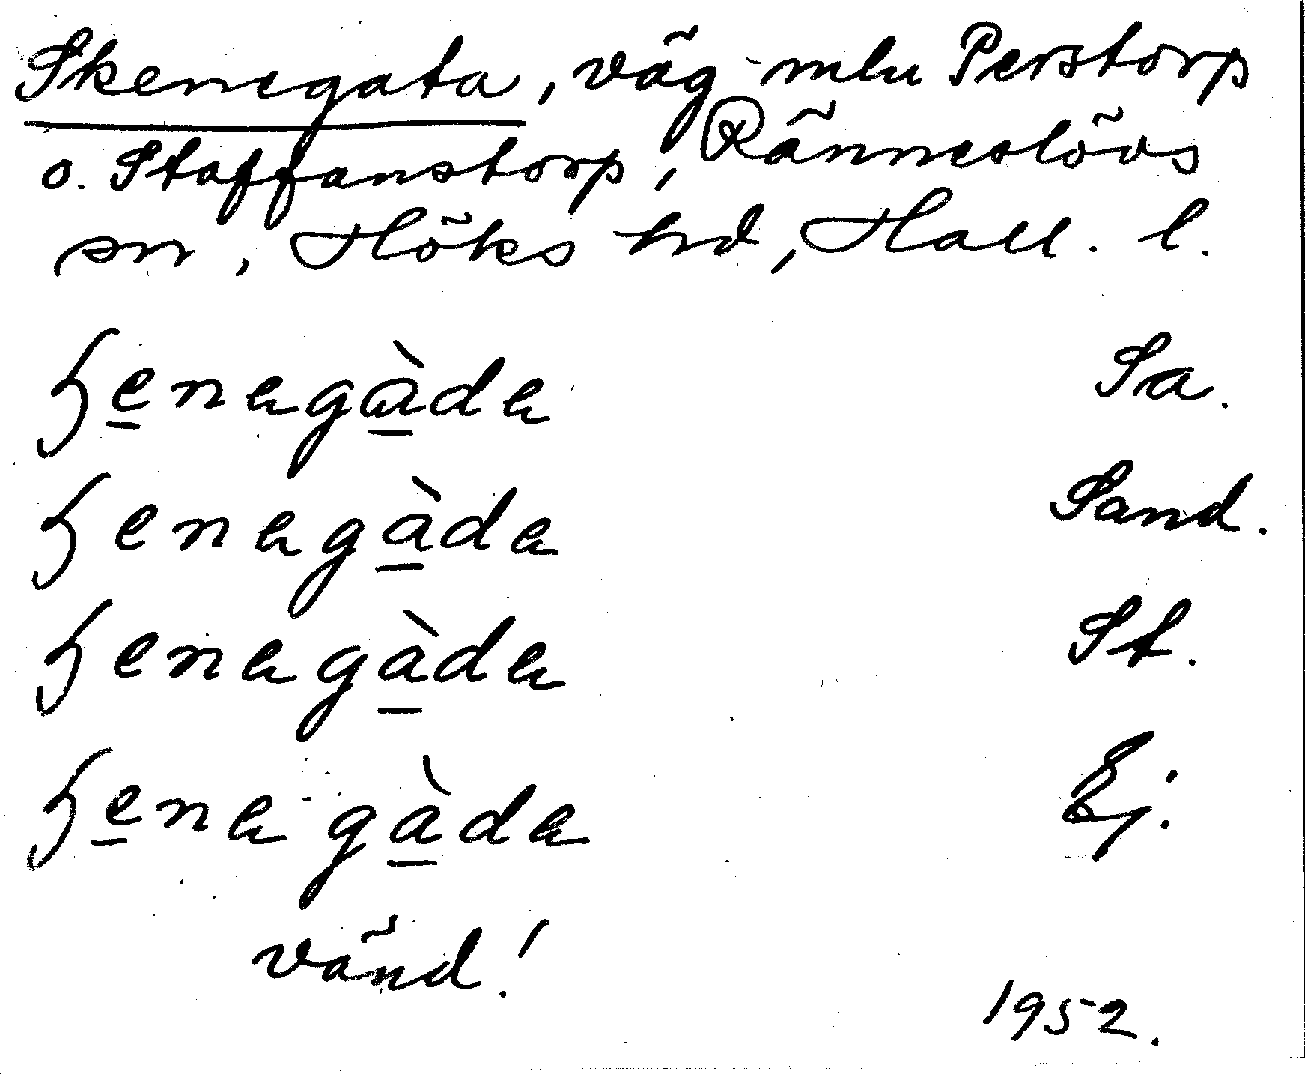 Skenegata, väg mlu Perstorp
o. Staffanstorp, Ränneslövs
sn, Höks hd, Hall. l.
ɧe̲nəgà̲də Sa.
ɧenəgà̲də Sand.
ɧenəgà̲də St.
ɧe̲nəgà̲də Ej.
vänd!
1952.